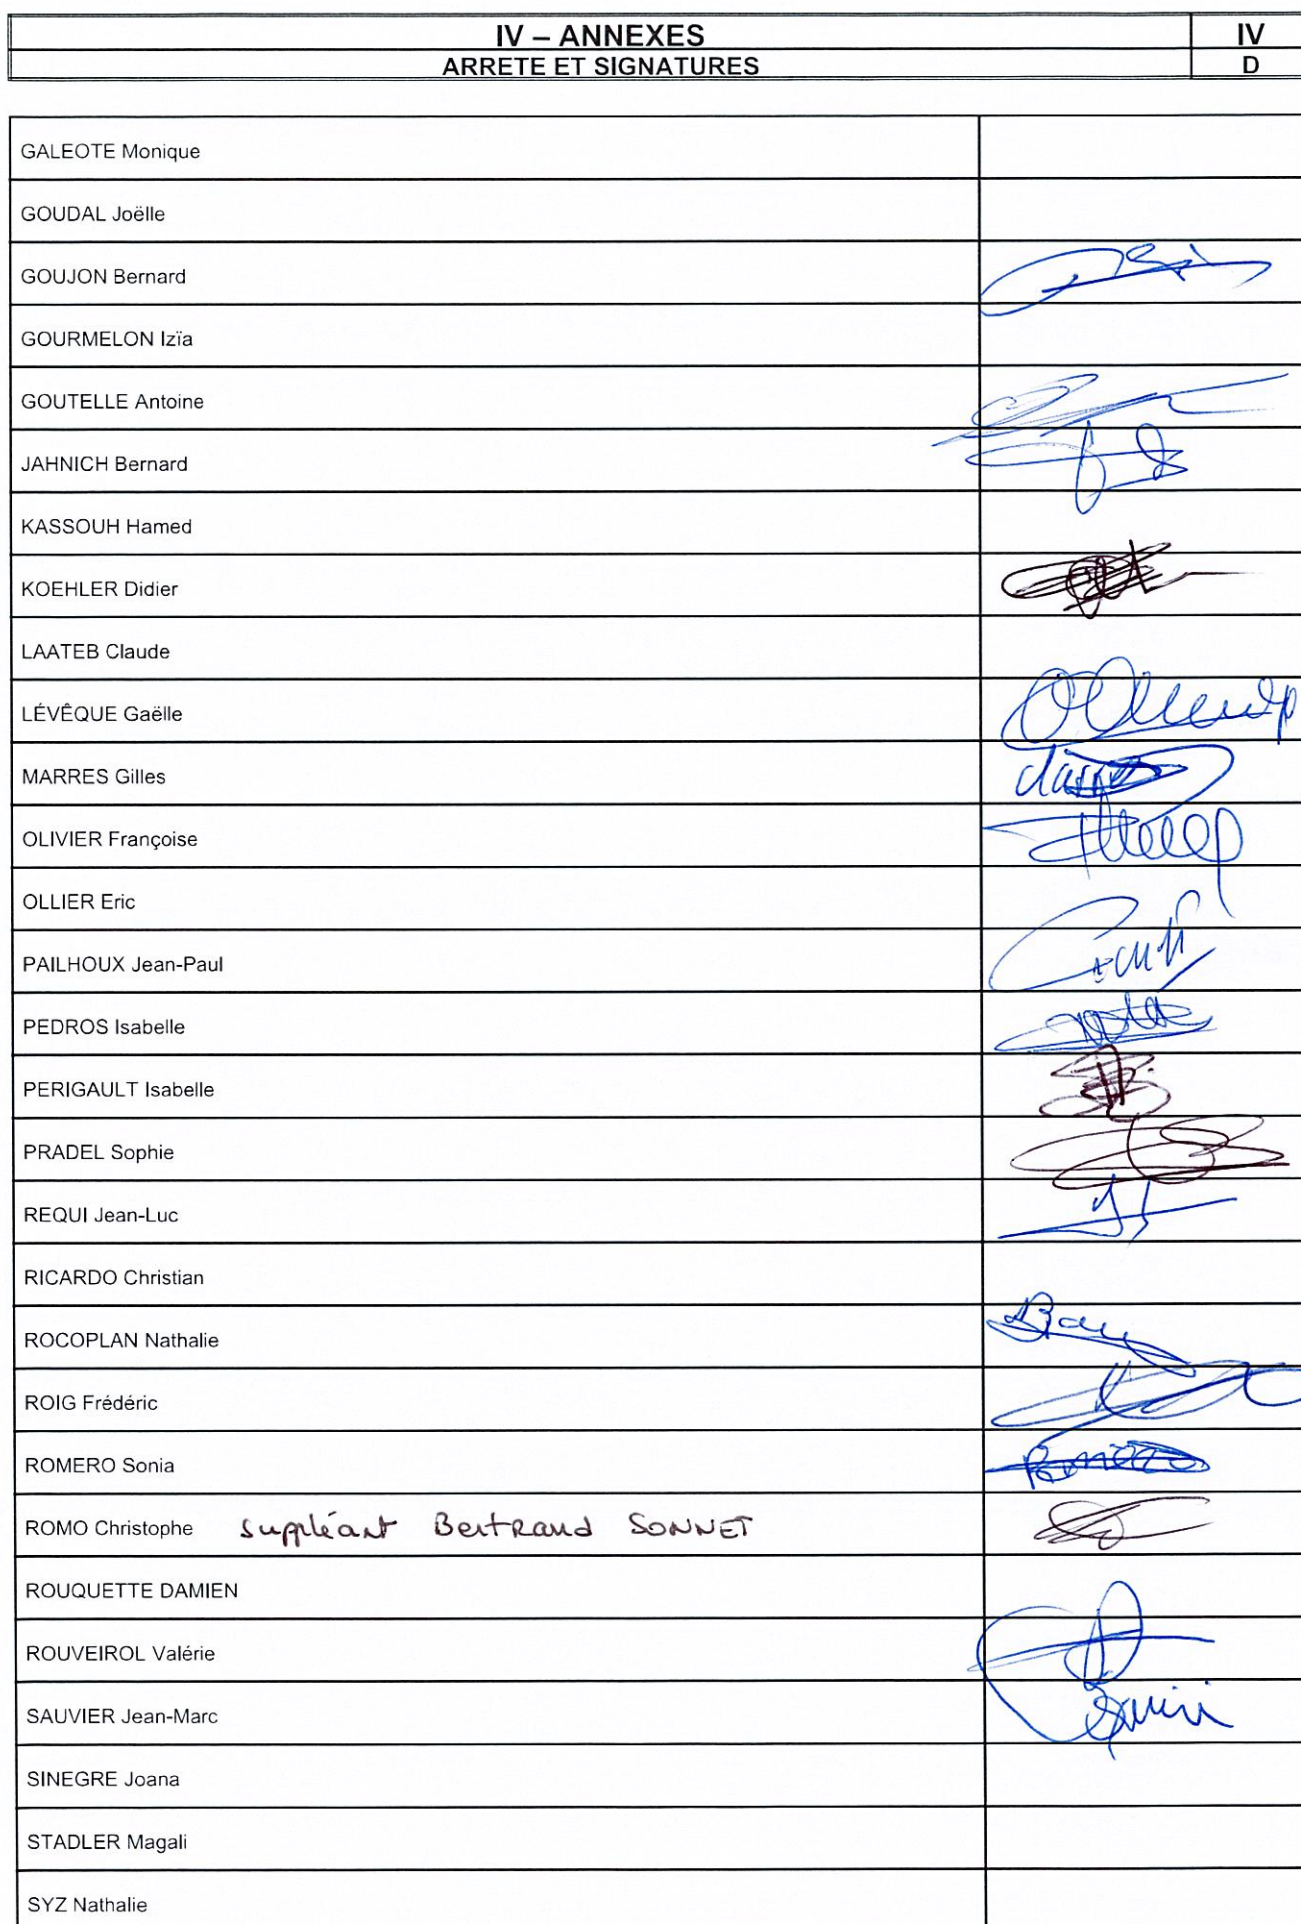 IV – ANNEXES IV
ARRETE ET SIGNATURES D
GALEOTE Monique
GOUDAL Joëlle
GOUJON Bernard
GOURMELON Izïa
GOUTELLE Antoine
JAHNICH Bernard
KASSOUH Hamed
KOEHLER Didier
LAATEB Claude
LÉVÊQUE Gaëlle
MARRES Gilles
OLIVIER Françoise
OLLIER Eric
PAILHOUX Jean-Paul
PEDROS Isabelle
PERIGAULT Isabelle
PRADEL Sophie
REQUI Jean-Luc
RICARDO Christian
ROCOPLAN Nathalie
ROIG Frédéric
ROMERO Sonia
ROMO Christophe suppléant Bertrand SONNET
ROUQUETTE DAMIEN
ROUVEIROL Valérie
SAUVIER Jean-Marc
SINEGRE Joana
STADLER Magali
SYZ Nathalie